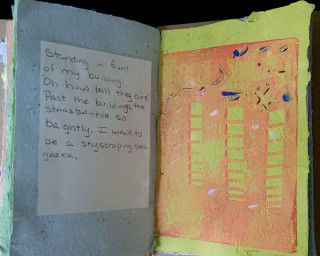 Standing in front
of my building
Oh how tall they are
Past the buildings the
stars twinkle so
brightly. I want to
be a skyscraping star
gazer.